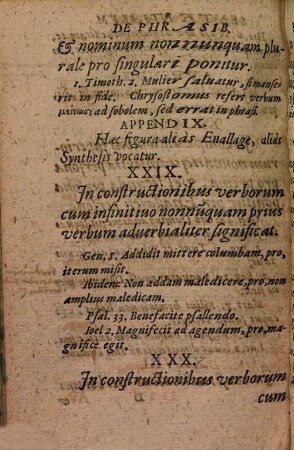 DE PHRASIB.
& nominum nonnunquam plu-
rale pro singulari ponitur.
1. Timoth. 2. Mulier saluatur, si manse-
rit in fide. Chrysostomus refert verbum
μείνωσι ad sobolem, sed errat in phrasi.
APPENDIX.
Hæc figura aliàs Enallage, aliàs
Synthesis vocatur.
XXIX.
In constructionibus verborum
cum infinitiuo nonnũquam prius
verbum aduerbialiter significat.
Gen. 8. Addidit mittere columbam, pro,
iterum misit.
Ibidem: Non addam maledicere, pro, non
amplius maledicam.
Psal. 33. Benefacite psallendo.
Ioel 2. Magnifecit ad agendum, pro, ma-
gnifice egit.
XXX.
In constructionibus verborum
cum